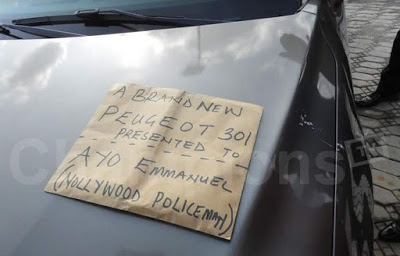 A BRAND NEW
PEUGEOT 301
PRESENTED TO
AYO EMMANUEL
(NOLLYWOOD POLICEMAN)